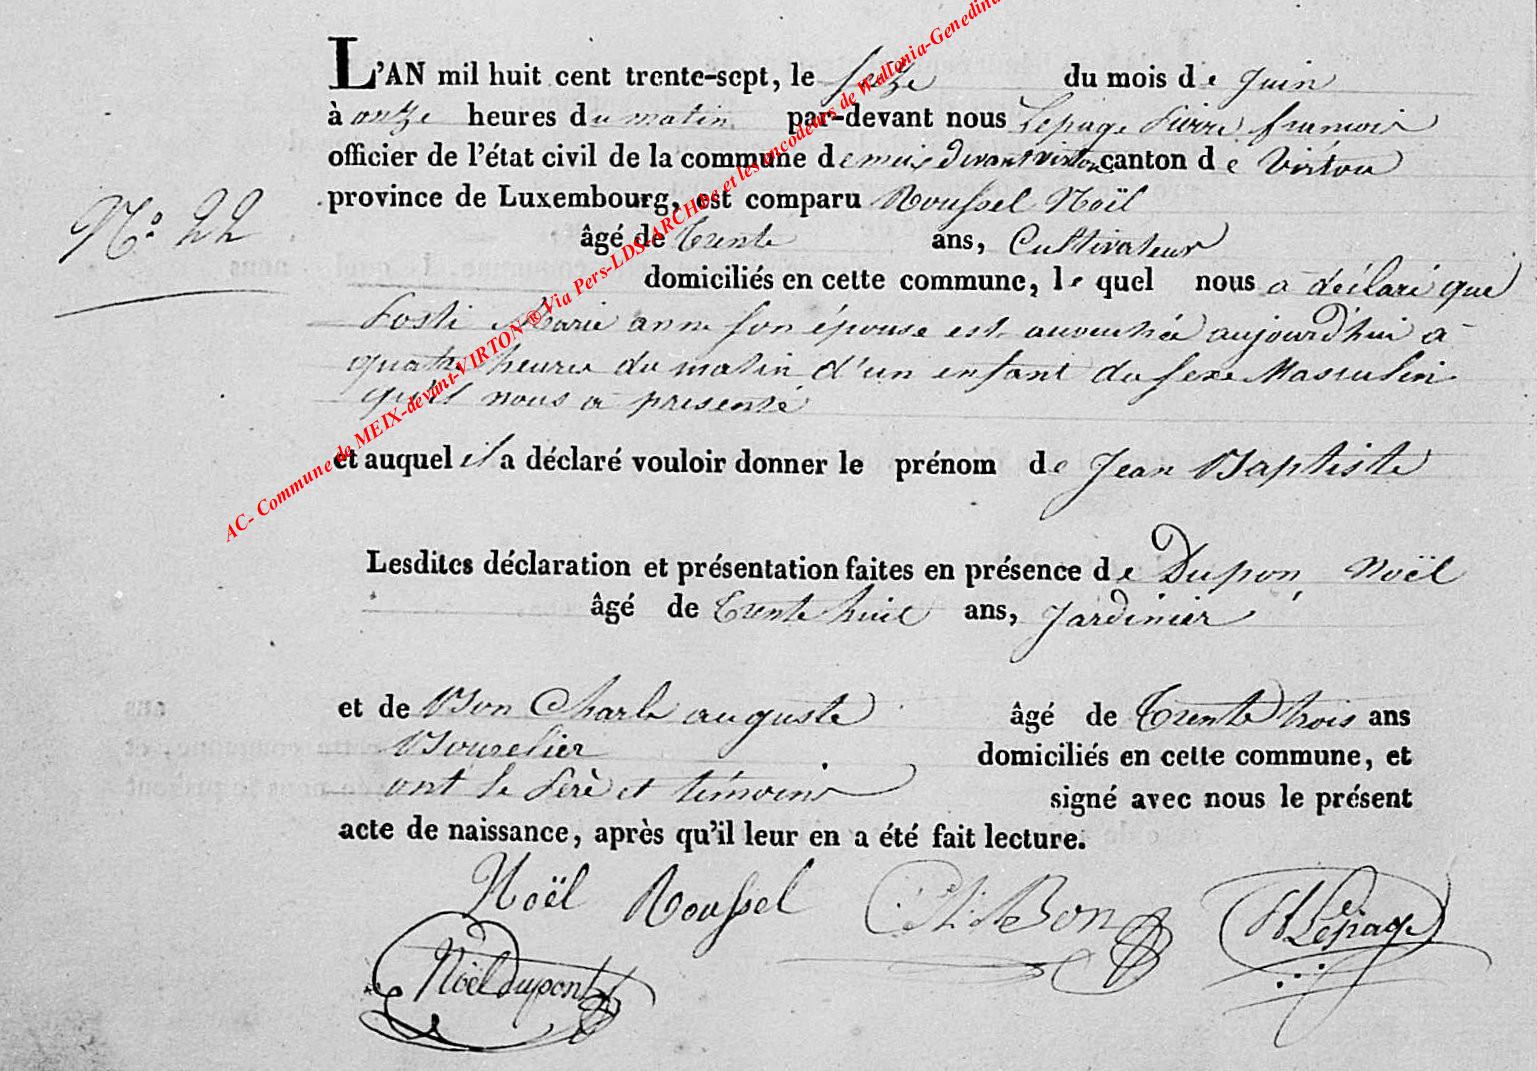 L'AN mil huit cent trente-sept, le seize du mois de Juin
à onze heures du matin par-devant nous Lepage Pierre françois
officier de l'état civil de la commune de meix devant virton canton de Virton
province de Luxembourg, est comparu Roussel Noël
N.° 22
âgé de trente ans, Cultivateur
domiciliés en cette commune, lequel nous a déclaré que
Posti Marie anne son épouse est accouchée aujourd'hui a
quatre heures du matin d'un enfant du sexe Masculin
qu'il nous a presenté
et auquel il a déclaré vouloir donner le prénom de Jean Baptiste
Lesdites déclaration et présentation faites en présence de Dupon Noël
âgé de trente huit ans, Jardinier
et de Bon Charle auguste âgé de trente trois ans
Bourelier domiciliés en cette commune, et
ont le Père et témoins signé avec nous le présent
acte de naissance, après qu'il leur en a été fait lecture.
Noël Roussel Bon Lepage
Noël dupont
AC- Commune de MEIX-devant-VIRTON ® Via Pers-LDS-ARCHDe et les encodeurs de Wallonia-Genedina